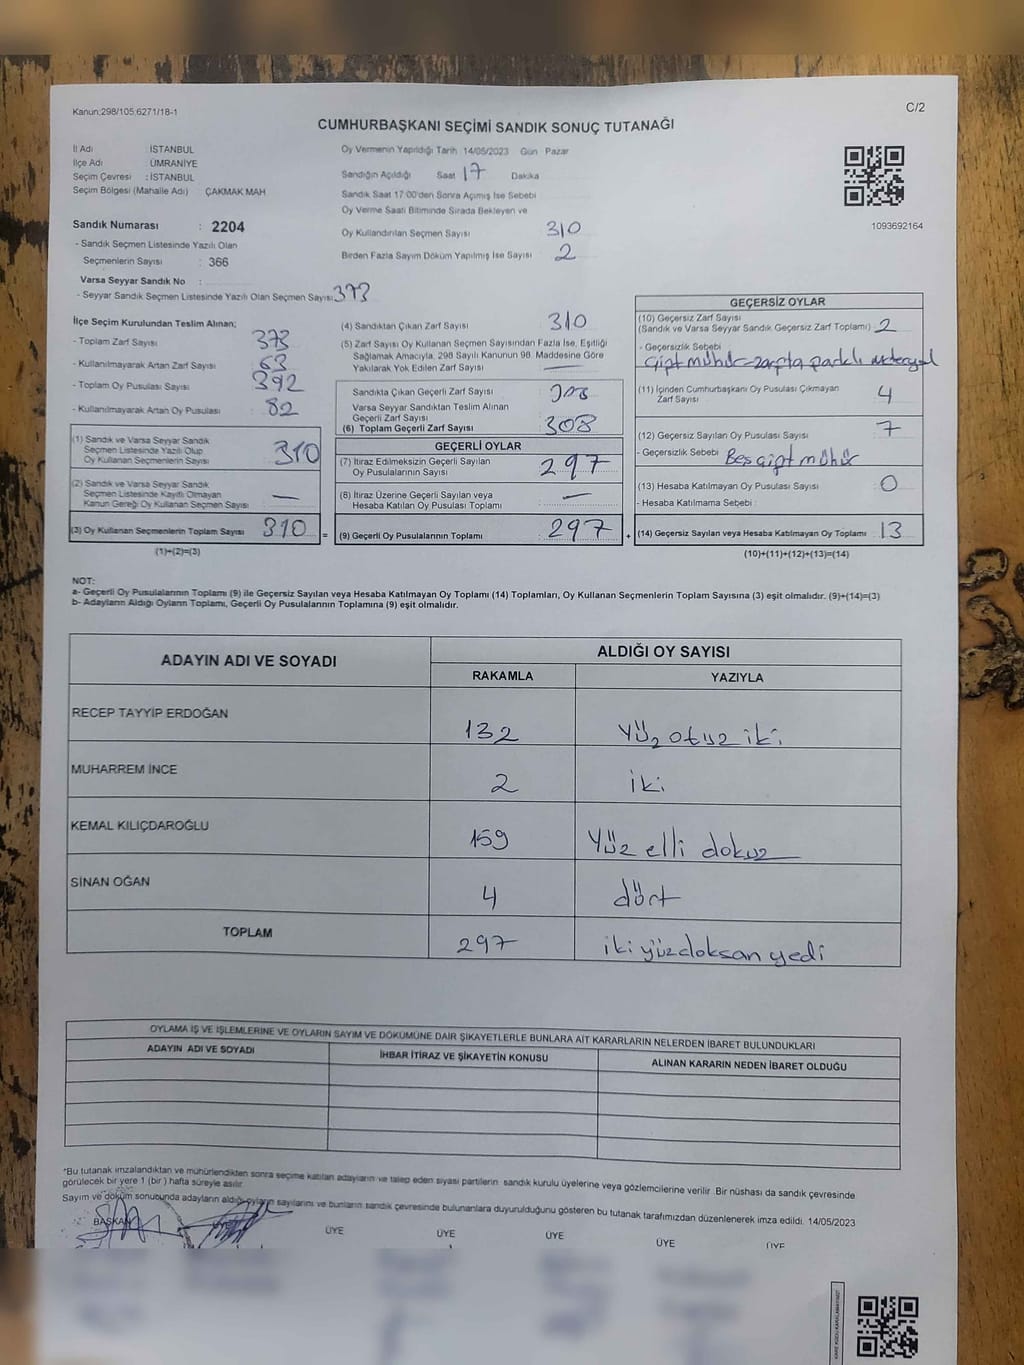 Kanun:298/105;6271/18-1
C/2
CUMHURBAŞKANI SEÇİMİ SANDIK SONUÇ TUTANAĞI
İl Adı : İSTANBUL
İlçe Adı : ÜMRANİYE
Seçim Çevresi : İSTANBUL
Seçim Bölgesi (Mahalle Adı) ÇAKMAK MAH
Sandık Numarası : 2204
- Sandık Seçmen Listesinde Yazılı Olan
Seçmenlerin Sayısı : 366
Varsa Seyyar Sandık No :
- Seyyar Sandık Seçmen Listesinde Yazılı Olan Seçmen Sayısı 373
Oy Vermenin Yapıldığı Tarih 14/05/2023 Gün Pazar
Sandığın Açıldığı Saat 17 Dakika
Sandık Saat 17:00'den Sonra Açımış İse Sebebi
Oy Verme Saati Bitiminde Sırada Bekleyen ve
Oy Kullandırılan Seçmen Sayısı 310
Birden Fazla Sayım Döküm Yapılmış İse Sayısı 2
1093692164
İlçe Seçim Kurulundan Teslim Alınan;
- Toplam Zarf Sayısı : 373
- Kullanılmayarak Artan Zarf Sayısı : 63
- Toplam Oy Pusulası Sayısı : 392
- Kullanılmayarak Artan Oy Pusulası : 82
(1) Sandık ve Varsa Seyyar Sandık
Seçmen Listesinde Yazılı Olup
Oy Kullanan Seçmenlerin Sayısı 310
(2) Sandık ve Varsa Seyyar Sandık
Seçmen Listesinde Kayıtlı Olmayan
Kanun Gereği Oy Kullanan Seçmen Sayısı —
(3) Oy Kullanan Seçmenlerin Toplam Sayısı 310 =
(1)+(2)=(3)
(4) Sandıktan Çıkan Zarf Sayısı 310
(5) Zarf Sayısı Oy Kullanan Seçmen Sayısından Fazla İse, Eşitliği
Sağlamak Amacıyla, 298 Sayılı Kanunun 98. Maddesine Göre
Yakılarak Yok Edilen Zarf Sayısı —
Sandıkta Çıkan Geçerli Zarf Sayısı 308
Varsa Seyyar Sandıktan Teslim Alınan
Geçerli Zarf Sayısı
(6) Toplam Geçerli Zarf Sayısı 308
GEÇERLİ OYLAR
(7) İtiraz Edilmeksizin Geçerli Sayılan
Oy Pusulalarının Sayısı 297
(8) İtiraz Üzerine Geçerli Sayılan veya
Hesaba Katılan Oy Pusulası Toplamı —
(9) Geçerli Oy Pusulalarının Toplamı 297 +
GEÇERSİZ OYLAR
(10) Geçersiz Zarf Sayısı
(Sandık ve Varsa Seyyar Sandık Geçersiz Zarf Toplamı) 2
- Geçersizlik Sebebi
Çipt mühür-zarfta farklı materyal
(11) İçinden Cumhurbaşkanı Oy Pusulası Çıkmayan
Zarf Sayısı 4
(12) Geçersiz Sayılan Oy Pusulası Sayısı 7
- Geçersizlik Sebebi Beş çipt mühür
(13) Hesaba Katılmayan Oy Pusulası Sayısı 0
- Hesaba Katılmama Sebebi :
(14) Geçersiz Sayılan veya Hesaba Katılmayan Oy Toplamı 13
(10)+(11)+(12)+(13)=(14)
NOT:
a- Geçerli Oy Pusulalarının Toplamı (9) ile Geçersiz Sayılan veya Hesaba Katılmayan Oy Toplamı (14) Toplamları, Oy Kullanan Seçmenlerin Toplam Sayısına (3) eşit olmalıdır. (9)+(14)=(3)
b- Adayların Aldığı Oyların Toplamı, Geçerli Oy Pusulalarının Toplamına (9) eşit olmalıdır.
ADAYIN ADI VE SOYADI
ALDIĞI OY SAYISI
RAKAMLA YAZIYLA
RECEP TAYYİP ERDOĞAN 132 yüz otuz iki
MUHARREM İNCE 2 iki
KEMAL KILIÇDAROĞLU 159 Yüz elli dokuz
SİNAN OĞAN 4 dört
TOPLAM 297 iki yüz doksan yedi
OYLAMA İŞ VE İŞLEMLERİNE VE OYLARIN SAYIM VE DÖKÜMÜNE DAİR ŞİKAYETLERLE BUNLARA AİT KARARLARIN NELERDEN İBARET BULUNDUKLARI
ADAYIN ADI VE SOYADI İHBAR İTİRAZ VE ŞİKAYETİN KONUSU ALINAN KARARIN NEDEN İBARET OLDUĞU
*Bu tutanak imzalandıktan ve mühürlendikten sonra seçime katılan adayların ve talep eden siyasi partilerin sandık kurulu üyelerine veya gözlemcilerine verilir. Bir nüshası da sandık çevresinde
görülecek bir yere 1 (bir) hafta süreyle asılır.
Sayım ve döküm sonucunda adayların aldığı oyların sayılarını ve bunların sandık çevresinde bulunanlara duyurulduğunu gösteren bu tutanak tarafımızdan düzenlenerek imza edildi. 14/05/2023
BAŞKAN ÜYE ÜYE ÜYE ÜYE ÜYE ÜYE